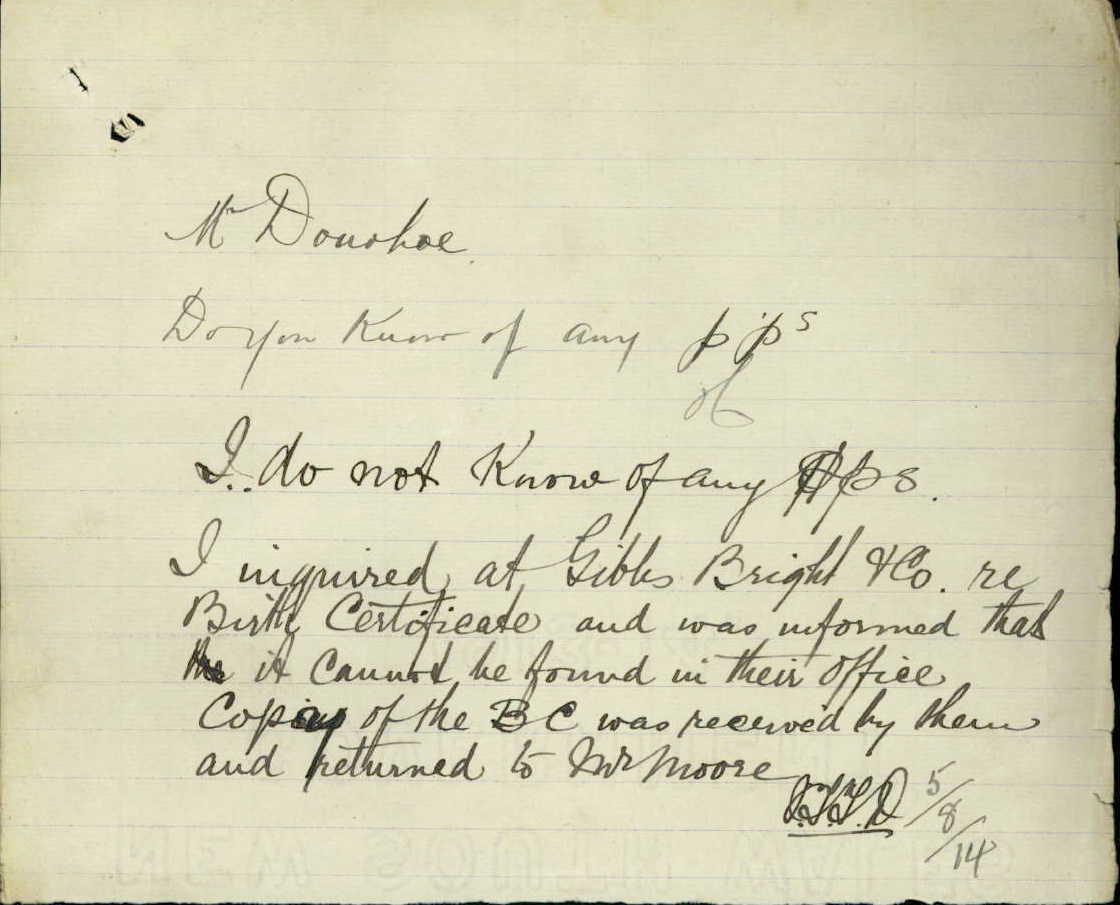 Mr Donohoe.
Do you Know of any p'ps
I do not Know of any pps.
I inquired at Gibbs Bright & Co. re
Birth Certificate and was informed that
it cannot be found in their office
Copy of the BC was received by them
and returned to Mr Moore
D 5/8/14
NEW SOUTH WALES